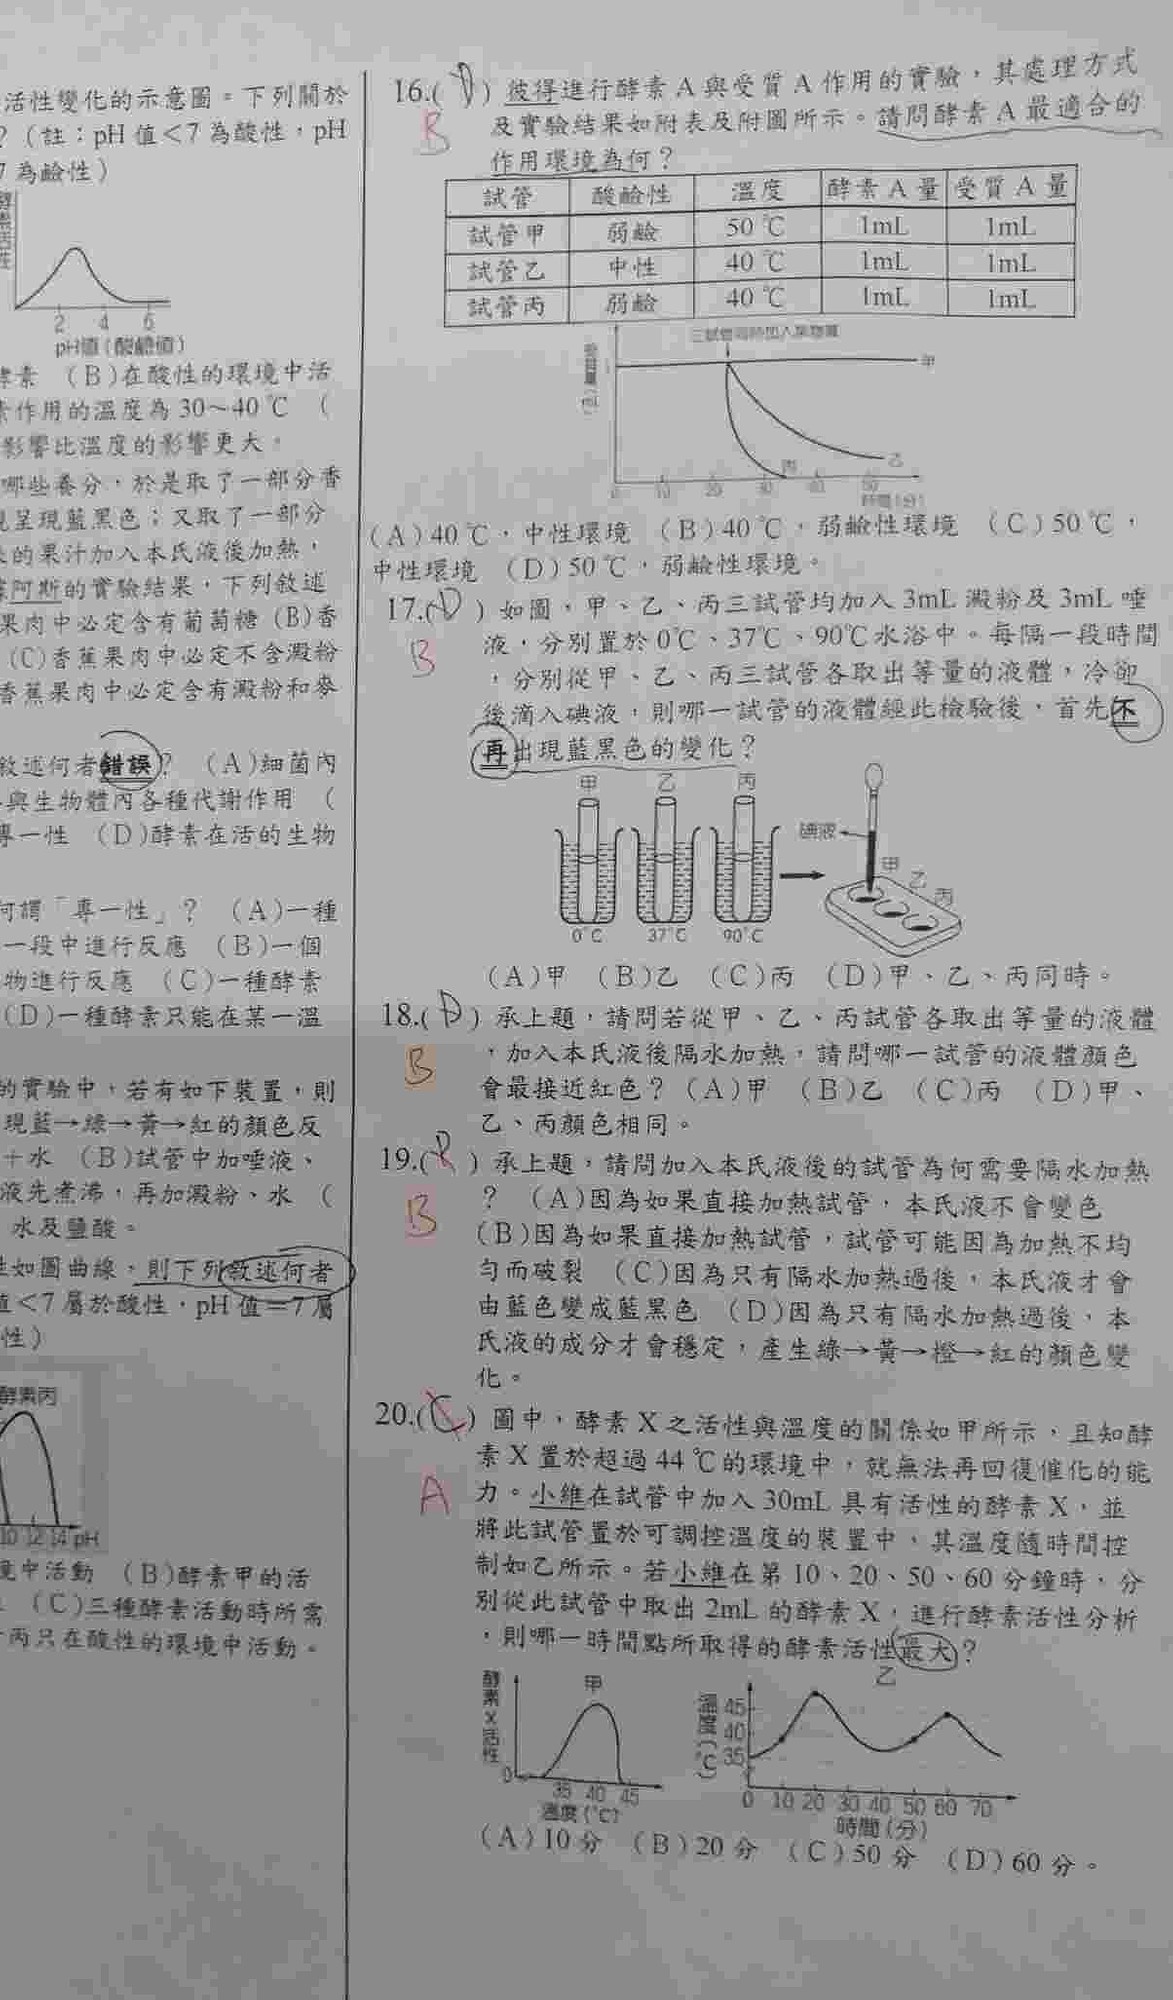 活性變化的示意圖。下列關於
?（註：pH 值＜7 為酸性，pH
7 為鹼性）
酵素活性
2 4 6
pH值（酸鹼值）
酵素 （B）在酸性的環境中活
素作用的溫度為 30～40 ℃ （
影響比溫度的影響更大。
哪些養分，於是取了一部分香
現呈現藍黑色；又取了一部分
的果汁加入本氏液後加熱，
據阿斯的實驗結果，下列敘述
果肉中必定含有葡萄糖 (B)香
(C)香蕉果肉中必定不含澱粉
香蕉果肉中必定含有澱粉和麥
敘述何者錯誤？ （A）細菌內
與生物體內各種代謝作用 （
專一性 （D）酵素在活的生物
何謂「專一性」？ （A）一種
一段中進行反應 （B）一個
物進行反應 （C）一種酵素
（D）一種酵素只能在某一溫
的實驗中，若有如下裝置，則
現藍→綠→黃→紅的顏色反
＋水 （B）試管中加唾液、
液先煮沸，再加澱粉、水 （
水及鹽酸。
性如圖曲線，則下列敘述何者
值＜7 屬於酸性，pH 值＝7 屬
性）
酵素丙
10 12 14 pH
境中活動 （B）酵素甲的活
（C）三種酵素活動時所需
丙只在酸性的環境中活動。
16.( D ) 彼得進行酵素 A 與受質 A 作用的實驗，其處理方式
B
及實驗結果如附表及附圖所示。請問酵素 A 最適合的
作用環境為何？
試管 酸鹼性 溫度 酵素 A 量 受質 A 量
試管甲 弱鹼 50 ℃ 1mL 1mL
試管乙 中性 40 ℃ 1mL 1mL
試管丙 弱鹼 40 ℃ 1mL 1mL
三試管同時加入
受質量(mL)
甲
乙
丙
0 10 20 30 40 50
時間(分)
（A）40 ℃，中性環境 （B）40 ℃，弱鹼性環境 （C）50 ℃，
中性環境 （D）50 ℃，弱鹼性環境。
17.( D ) 如圖，甲、乙、丙三試管均加入 3mL 澱粉及 3mL 唾
B
液，分別置於 0℃、37℃、90℃水浴中。每隔一段時間
，分別從甲、乙、丙三試管各取出等量的液體，冷卻
後滴入碘液，則哪一試管的液體經此檢驗後，首先不
再出現藍黑色的變化？
甲 乙 丙
碘液
甲
乙
丙
0℃ 37℃ 90℃
（A）甲 （B）乙 （C）丙 （D）甲、乙、丙同時。
18.( D ) 承上題，請問若從甲、乙、丙試管各取出等量的液體
B
，加入本氏液後隔水加熱，請問哪一試管的液體顏色
會最接近紅色？（A）甲 （B）乙 （C）丙 （D）甲、
乙、丙顏色相同。
19.( ) 承上題，請問加入本氏液後的試管為何需要隔水加熱
B
？ （A）因為如果直接加熱試管，本氏液不會變色
（B）因為如果直接加熱試管，試管可能因為加熱不均
勻而破裂 （C）因為只有隔水加熱過後，本氏液才會
由藍色變成藍黑色 （D）因為只有隔水加熱過後，本
氏液的成分才會穩定，產生綠→黃→橙→紅的顏色變
化。
20.( C ) 圖中，酵素 X 之活性與溫度的關係如甲所示，且知酵
A
素 X 置於超過 44 ℃的環境中，就無法再回復催化的能
力。小維在試管中加入 30mL 具有活性的酵素 X，並
將此試管置於可調控溫度的裝置中，其溫度隨時間控
制如乙所示。若小維在第 10、20、50、60 分鐘時，分
別從此試管中取出 2mL 的酵素 X，進行酵素活性分析
，則哪一時間點所取得的酵素活性最大？
甲
酵素X活性
0
35 40 45
溫度(℃)
乙
溫度(℃)
45
40
35
0 10 20 30 40 50 60 70
時間(分)
（A）10 分 （B）20 分 （C）50 分 （D）60 分。